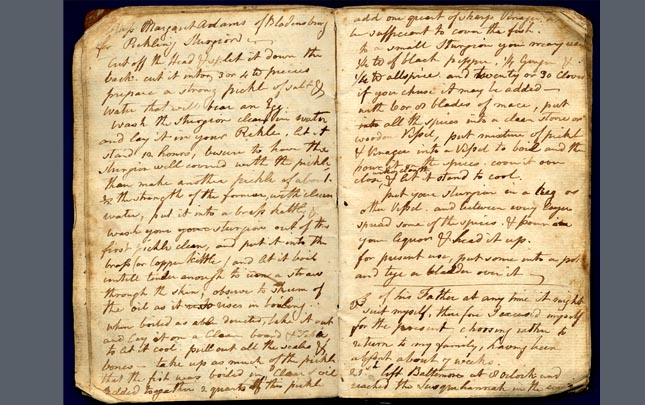 Margaret Adams of Bladensburg
for Pickling Sturgeon :—
Cut off the Head & split it down the
back. cut it into 3 or 4 to pieces
prepare a strong pickle of salt &
water that will bear an Egg
Wash the Sturgeon clean in water
and lay it in your Pickle. let it
stand 12 hours, be sure to have the
Sturgeon well covered with the pickle
than make another pickle of about
the strength of the former with clean
water, put it into a brass kettle
wash your Sturgeon out of the
first pickle clean, and put it into the
brass (or Copper kettle) and let it boil
untill tender enough to run a straw
through the skin, observe to skum of
the oil as it rises in boiling.
when boiled as directed, take it out
and lay it on a Clean board
to let it cool. pull out all the scales &
bones — take up as much of the pickle
that the fish was boiled in, Clear of oil
added together 2 quarts of the pickle
add one quart of sharp Vinegar.
be sufficient to cover the fish.
In a small Sturgeon you may use
¼ lb of black pepper, ¼ Ginger &
¼ lb allspice and twenty or 30 cloves
if you chuse it may be added —
with 6 or 8 blades of mace, put
all the Spices into a clean stone or
wooden Vessel, put mixture of pickle
& Vinegar into a Vessel to boil and then
pour it on the spices. cover it over
close with cloth & let it stand to cool.
put your Sturgeon in a keg or
other Vessel. and between every layer
spread some of the spices. & pour in
your liquor & head it up.
for present use, put some into a pot
and tye a bladder over it
of his Father at any time it might
suit myself, therefore I accused myself
for the present choosing rather to
return to my family, having been
absent about 7 weeks.
left Baltimore at 8 oclock and
reached the Susquehannah in the